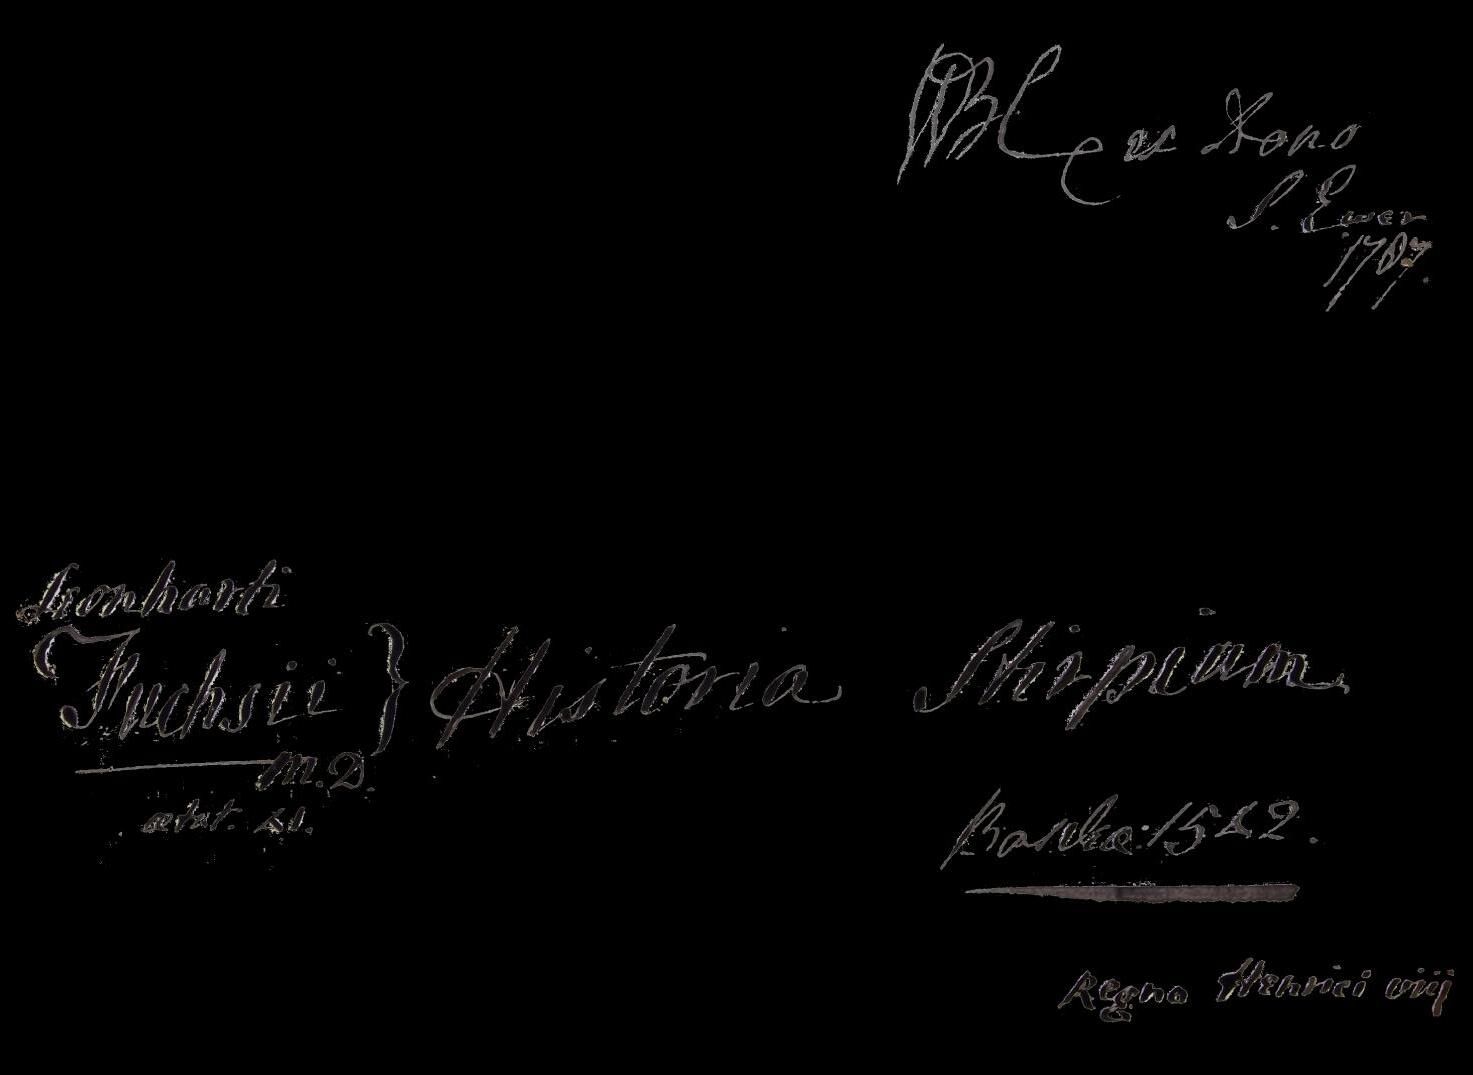 WBC ex Dono
S. Ewer
1787.
Leonharti
Fuchsii } Historia Stirpium
M.D.
ætat. 41.
Basileæ: 1542.
Regno Henrici viij